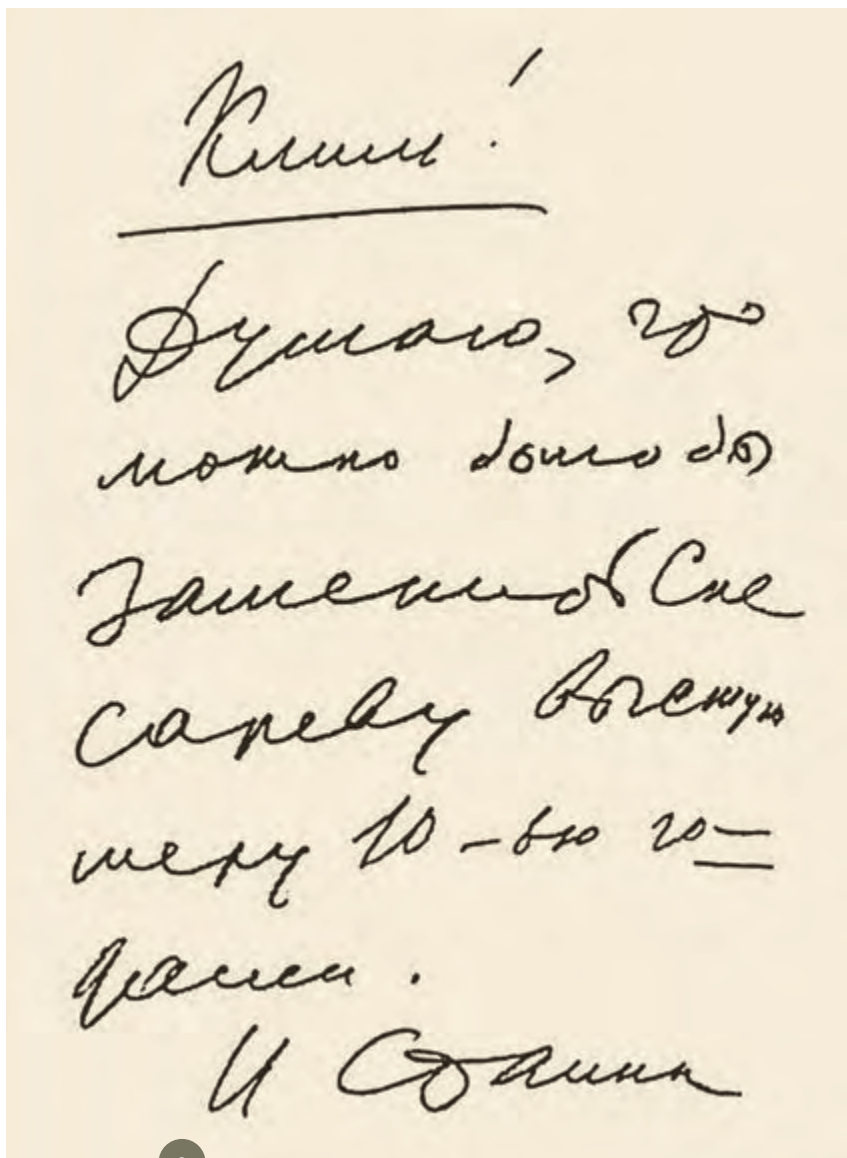 Клим!
Думаю, что
можно было бы
заменить Сне
сареву высшую
меру 10-ью го=
дами.
И Сталин